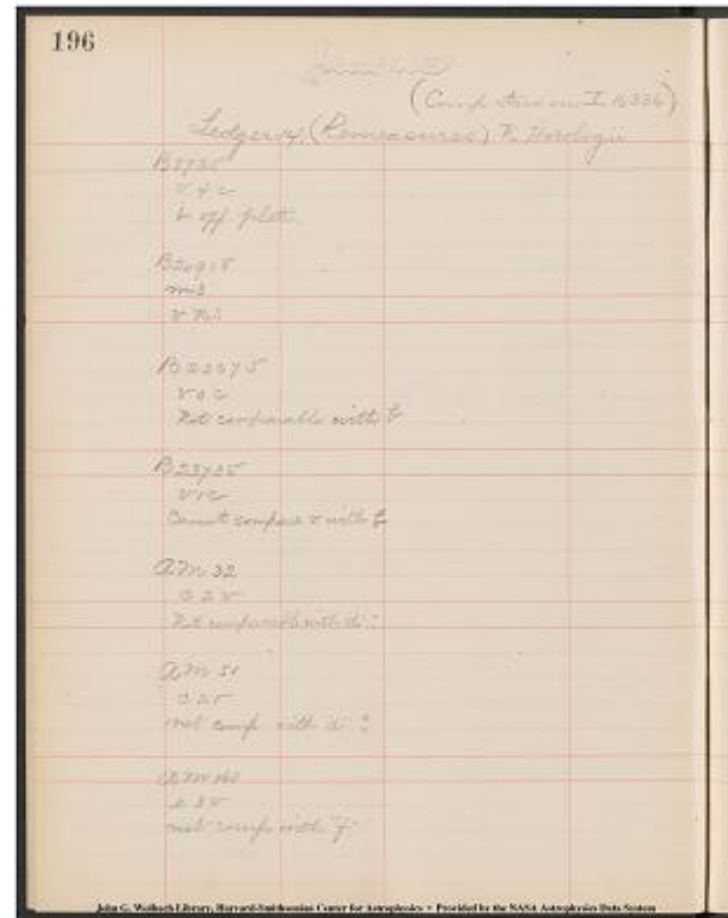 196
(Comp stars on I 16336)
Ledger 14 (Remeasures) R. Horologii
v 4 c
b off plate
B20918
m 3
B22075
v o c
Not comparable with b
B23725
v 1 c
Cannot compare v with b
AM 32
c 2 v
Not comparable with d:
AM 51
c 2 v
not comp with d:
AM
not comp with f
John G. Wolbach Library, Harvard-Smithsonian Center for Astrophysics • Provided by the NASA Astrophysics Data System